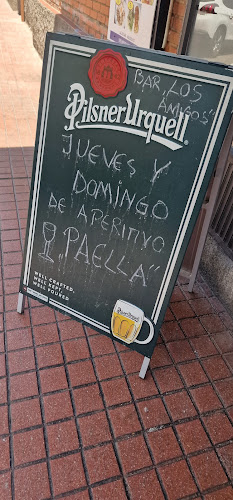 BAR, LOS
AMIGOS"
Pilsner Urquell
JUEVES Y
DOMINGO
DE APERITIVO
"PAELLA"
WELL CRAFTED.
WELL KEPT.
WELL POURED.